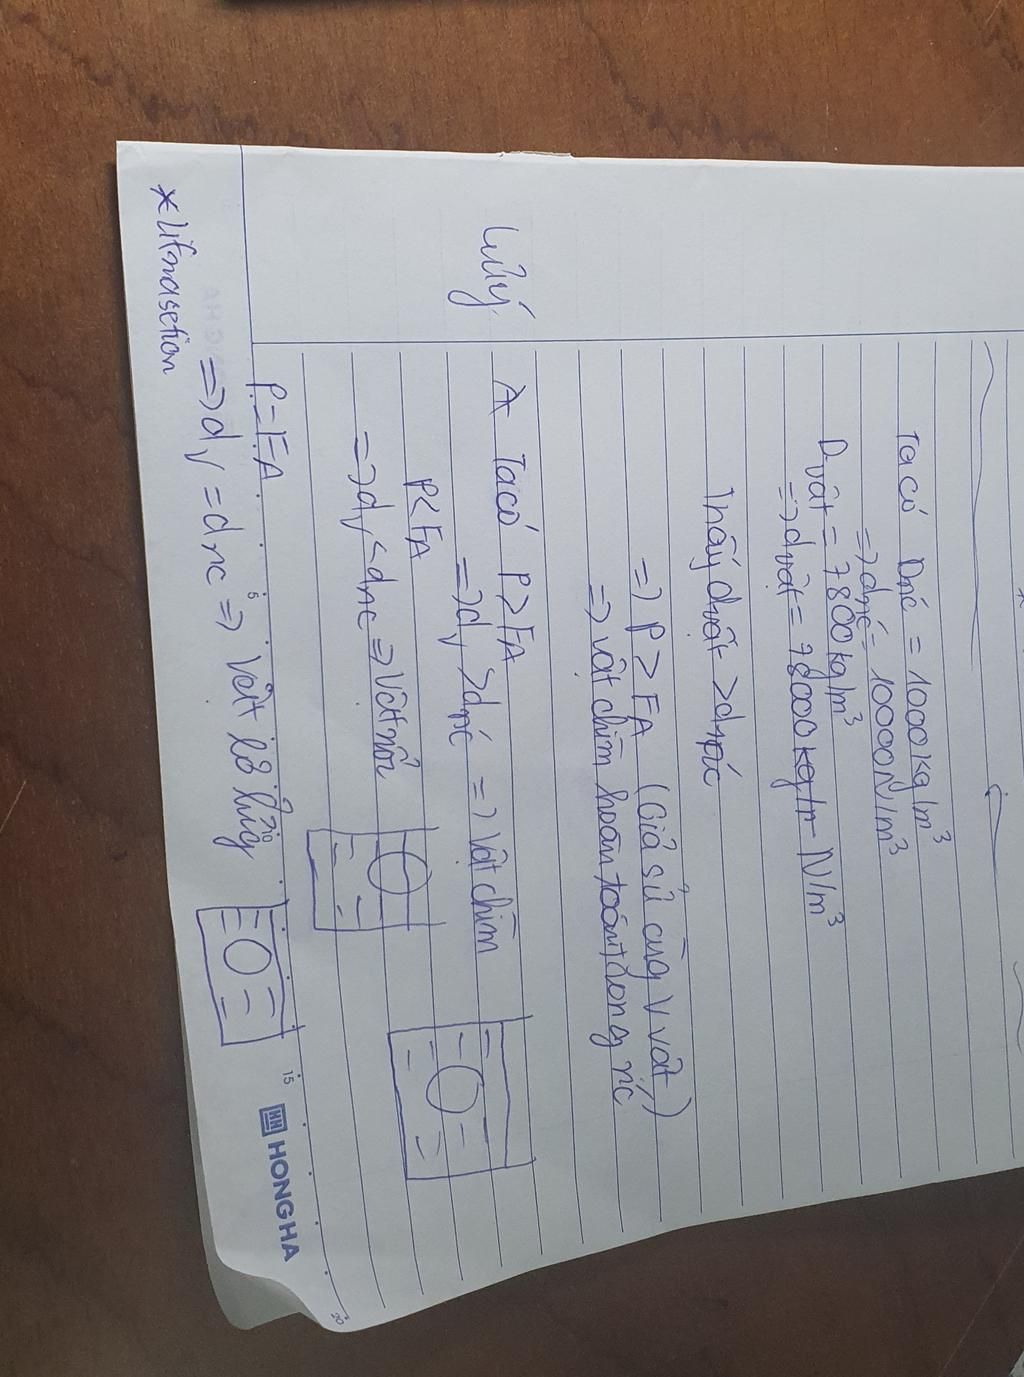 Ta có Dnć = 1000kg/m³
=> dnć = 10000N/m³
Dvật = 7800kg/m³
=> dvật = 78000 kg/m N/m³
Thấy dvật > dnước
=> P > FA (Giả sử cùng V vật)
=> vật chìm hoàn toàn trong nc
Lưu ý
* Ta có P > FA
=> dv > dnć => Vật chìm
P < FA
=> dv < dnc => Vật nổi
P = FA
=> dv = dnc => Vật lơ lửng
5
10
15
20
HONG HA